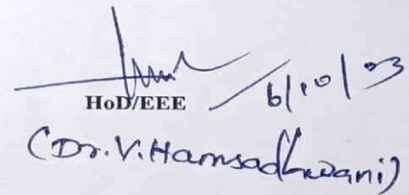 HoD/EEE
6/10/23
(Dr.V.Hamsadhwani)